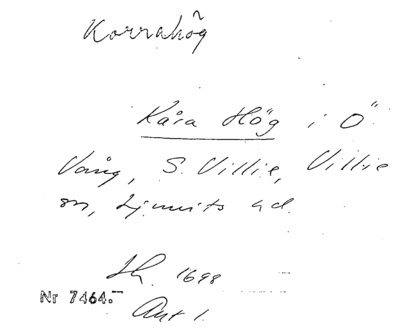 Korrahög
Kåra Hög i Ö
Vång, S. Villie, Villie
sn, Ljunits hd.
Lh. 1698
Nr 7464.
Ant 1.